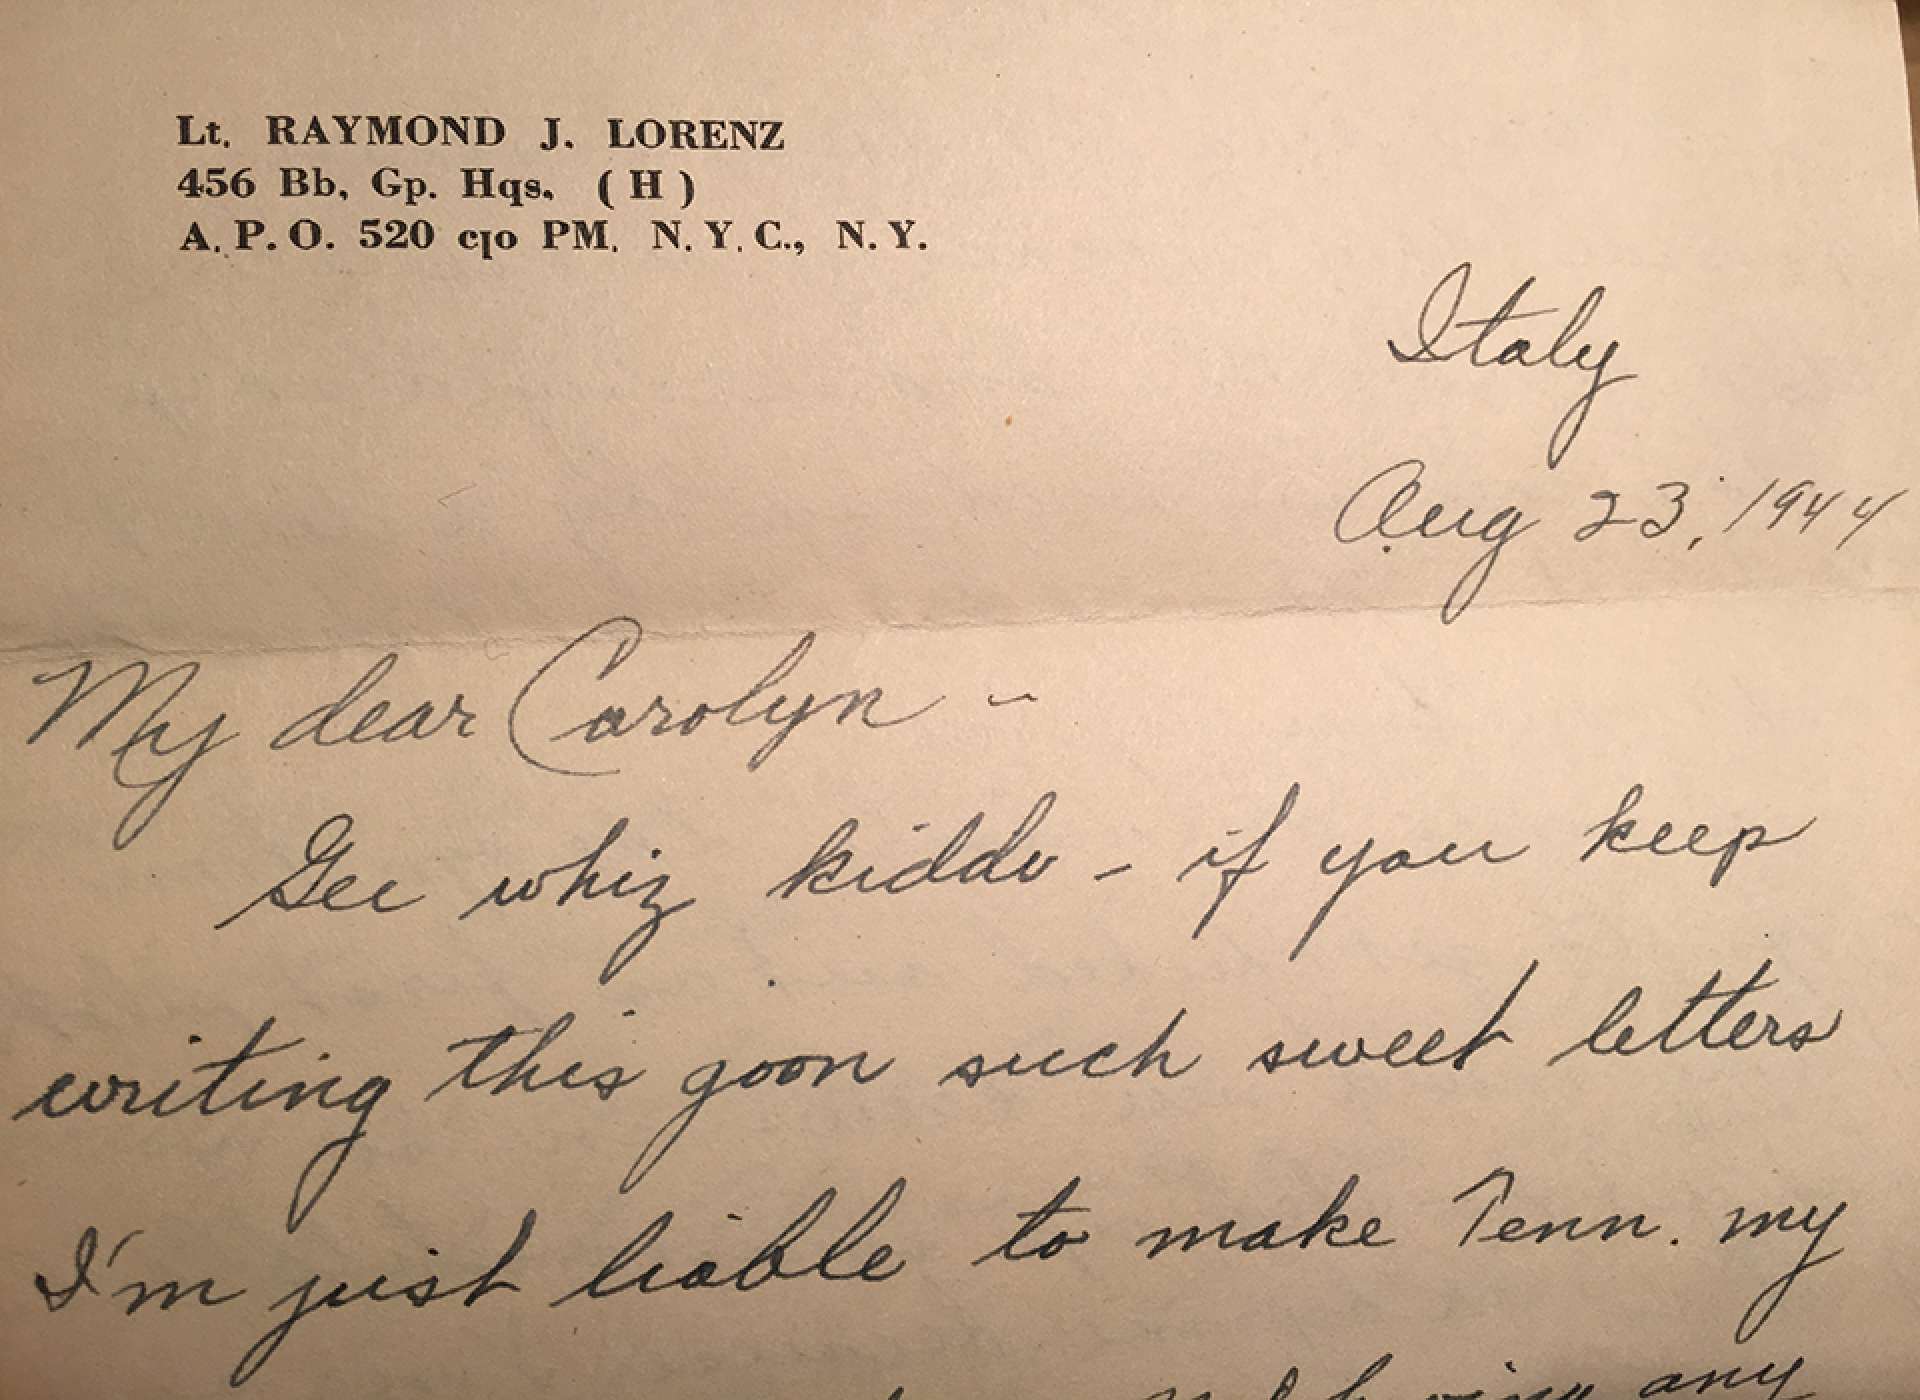 Lt. RAYMOND J. LORENZ
456 Bb, Gp. Hqs. ( H )
A. P. O. 520 c|o PM. N. Y. C., N. Y.
Italy
Aug 23, 1944
My dear Carolyn -
Gee whiz kiddo - if you keep
writing this goon such sweet letters
I'm just liable to make Tenn. my
any